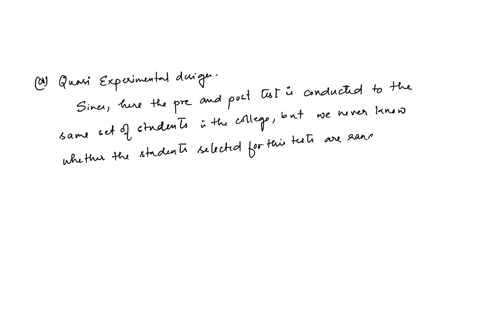 (a) Quasi Experimental design.
Since, here the pre and post test is conducted to the
same set of students in the college, but we never know
whether the students selected for this tests are ran